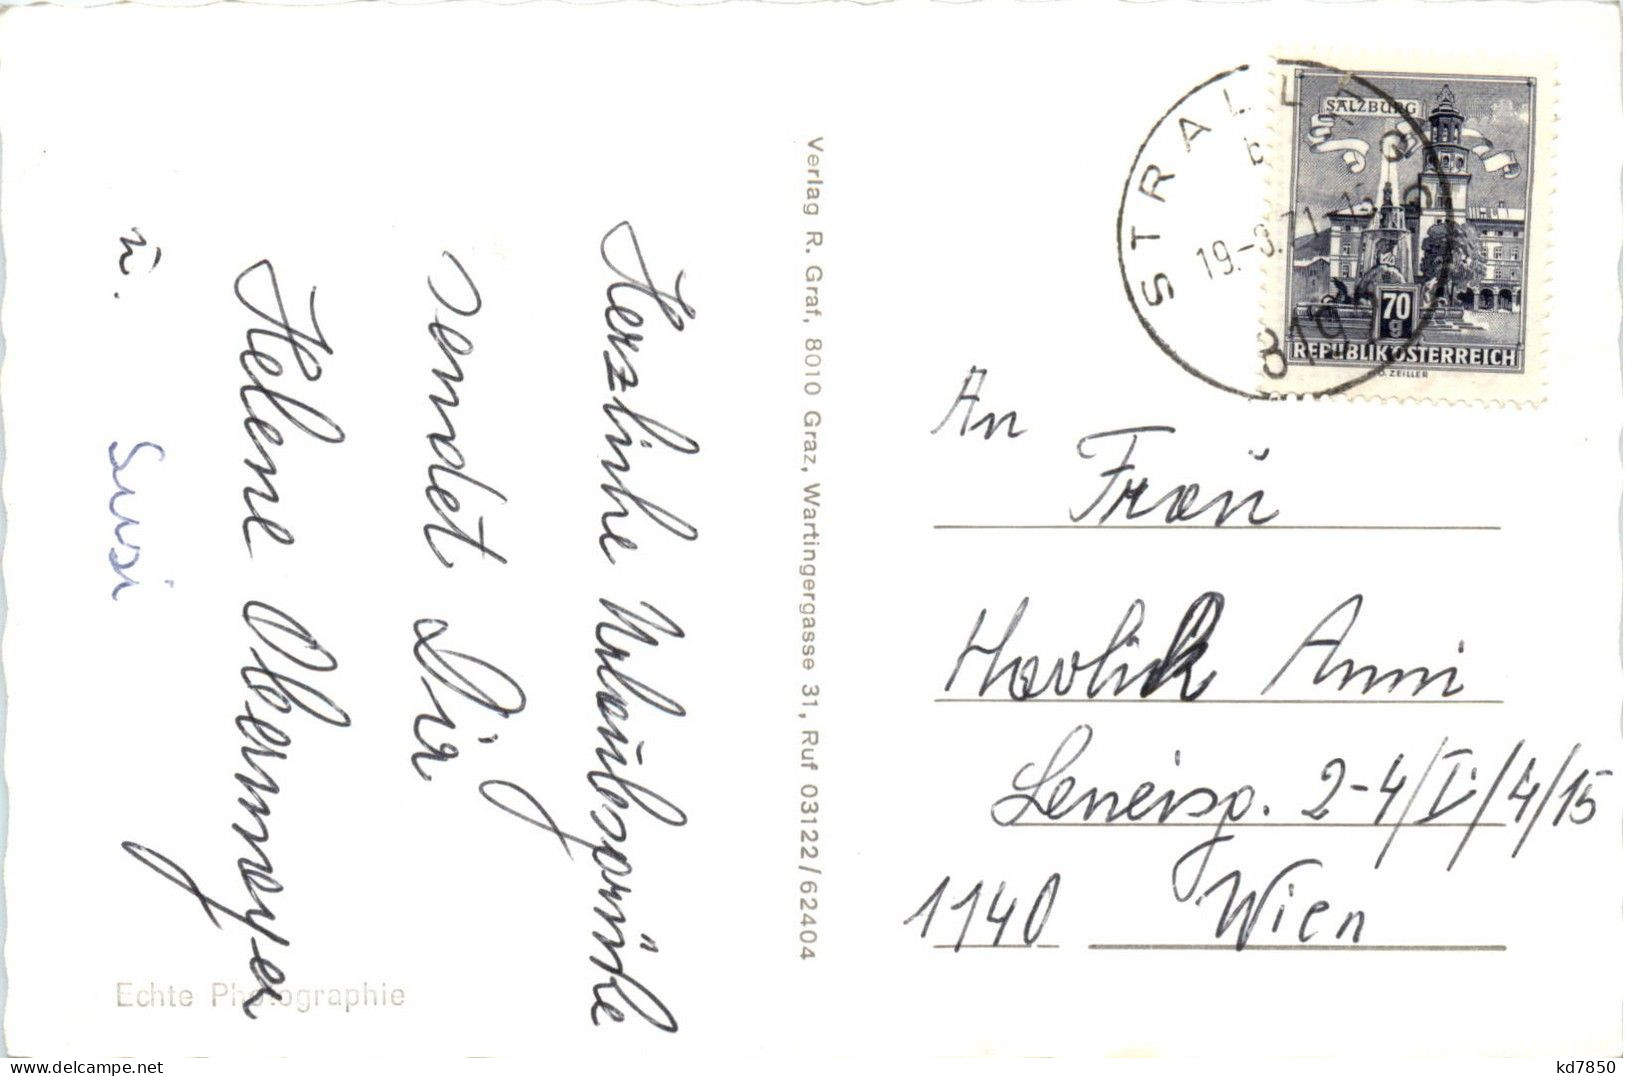 Herzliche Urlaubsgrüße
sendet Dir
Helene Obermayer
u. Susi
Echte Photographie
Verlag R. Graf, 8010 Graz, Wartingergasse 31, Ruf 03122/62404
STRALLEGG
19.-8.71-15
8192
SALZBURG
70
g
REPUBLIK ÖSTERREICH
O. ZEILLER
An
Frau
Havlick Anni
2-4/I/4/15
1140 Wien
kd7850